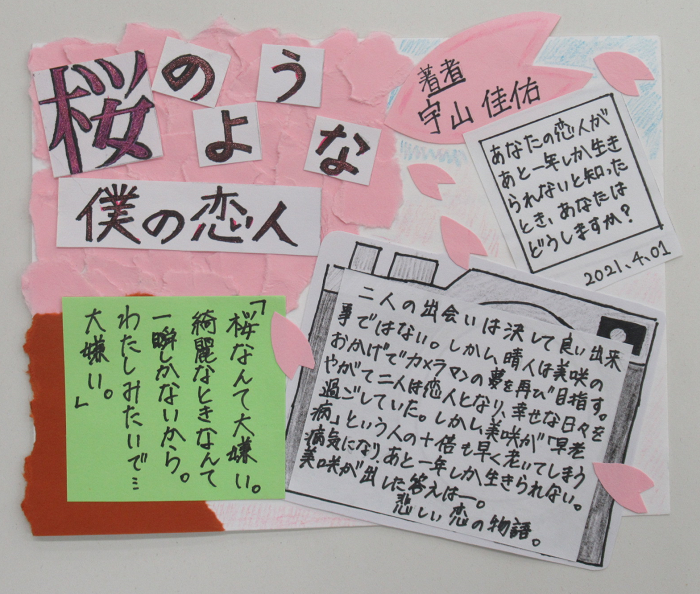 桜のような
僕の恋人
著者
宇山佳佑
あなたの恋人が
あと一年しか生き
られないと知った
とき、あなたは
どうしますか？
2021.4.01
「桜なんて大嫌い。
綺麗なときなんて
一瞬しかないから。
わたしみたいで…
大嫌い。」
二人の出会いは決して良い出来
事ではない。しかし、晴人は美咲の
おかげでカメラマンの夢を再び目指す。
やがて二人は恋人となり、幸せな日々を
過ごしていた。しかし美咲が「早老
病」という人の十倍も早く老いてしまう
病気になり、あと一年しか生きられない。
美咲が出した答えは―。
悲しい恋の物語。